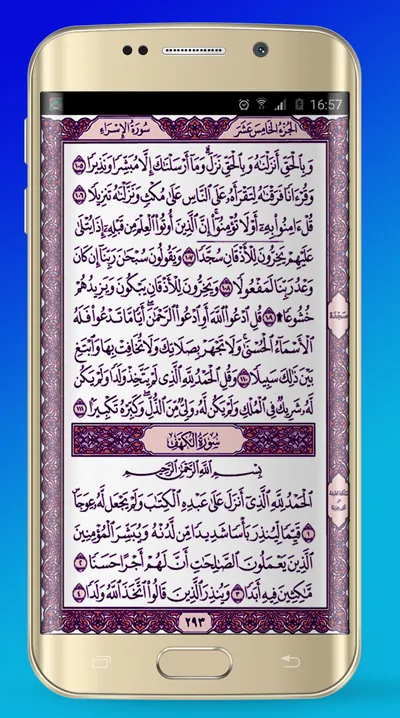 16:57
الجُزْءُ الخَامِسَ عَشَرَ
سُورَةُ الإِسْرَاءِ
وَبِالْحَقِّ أَنزَلْنَٰهُ وَبِالْحَقِّ نَزَلَ ۗ وَمَآ أَرْسَلْنَٰكَ إِلَّا مُبَشِّرًا وَنَذِيرًا ١٠٥
وَقُرْءَانًا فَرَقْنَٰهُ لِتَقْرَأَهُۥ عَلَى النَّاسِ عَلَىٰ مُكْثٍ وَنَزَّلْنَٰهُ تَنزِيلًا ١٠٦
قُلْ ءَامِنُوا۟ بِهِۦٓ أَوْ لَا تُؤْمِنُوٓا۟ ۚ إِنَّ الَّذِينَ أُوتُوا۟ الْعِلْمَ مِن قَبْلِهِۦٓ إِذَا يُتْلَىٰ
عَلَيْهِمْ يَخِرُّونَ لِلْأَذْقَانِ سُجَّدًا ١٠٧ وَيَقُولُونَ سُبْحَٰنَ رَبِّنَآ إِن كَانَ
وَعْدُ رَبِّنَا لَمَفْعُولًا ١٠٨ وَيَخِرُّونَ لِلْأَذْقَانِ يَبْكُونَ وَيَزِيدُهُمْ
خُشُوعًا ۩ ١٠٩ قُلِ ادْعُوا۟ اللَّهَ أَوِ ادْعُوا۟ الرَّحْمَٰنَ ۖ أَيًّا مَّا تَدْعُوا۟ فَلَهُ
الْأَسْمَآءُ الْحُسْنَىٰ ۚ وَلَا تَجْهَرْ بِصَلَاتِكَ وَلَا تُخَافِتْ بِهَا وَابْتَغِ
بَيْنَ ذَٰلِكَ سَبِيلًا ١١٠ وَقُلِ الْحَمْدُ لِلَّهِ الَّذِى لَمْ يَتَّخِذْ وَلَدًا وَلَمْ يَكُن
لَّهُۥ شَرِيكٌ فِى الْمُلْكِ وَلَمْ يَكُن لَّهُۥ وَلِىٌّ مِّنَ الذُّلِّ ۖ وَكَبِّرْهُ تَكْبِيرًۢا ١١١
سُورَةُ الكَهْفِ
بِسْمِ اللَّهِ الرَّحْمَٰنِ الرَّحِيمِ
الْحَمْدُ لِلَّهِ الَّذِىٓ أَنزَلَ عَلَىٰ عَبْدِهِ الْكِتَٰبَ وَلَمْ يَجْعَل لَّهُۥ عِوَجَا
١ قَيِّمًا لِّيُنذِرَ بَأْسًا شَدِيدًا مِّن لَّدُنْهُ وَيُبَشِّرَ الْمُؤْمِنِينَ
الَّذِينَ يَعْمَلُونَ الصَّٰلِحَٰتِ أَنَّ لَهُمْ أَجْرًا حَسَنًا ٢
مَّٰكِثِينَ فِيهِ أَبَدًا ٣ وَيُنذِرَ الَّذِينَ قَالُوا۟ اتَّخَذَ اللَّهُ وَلَدًا ٤
سَجْدَة
٢٩٣